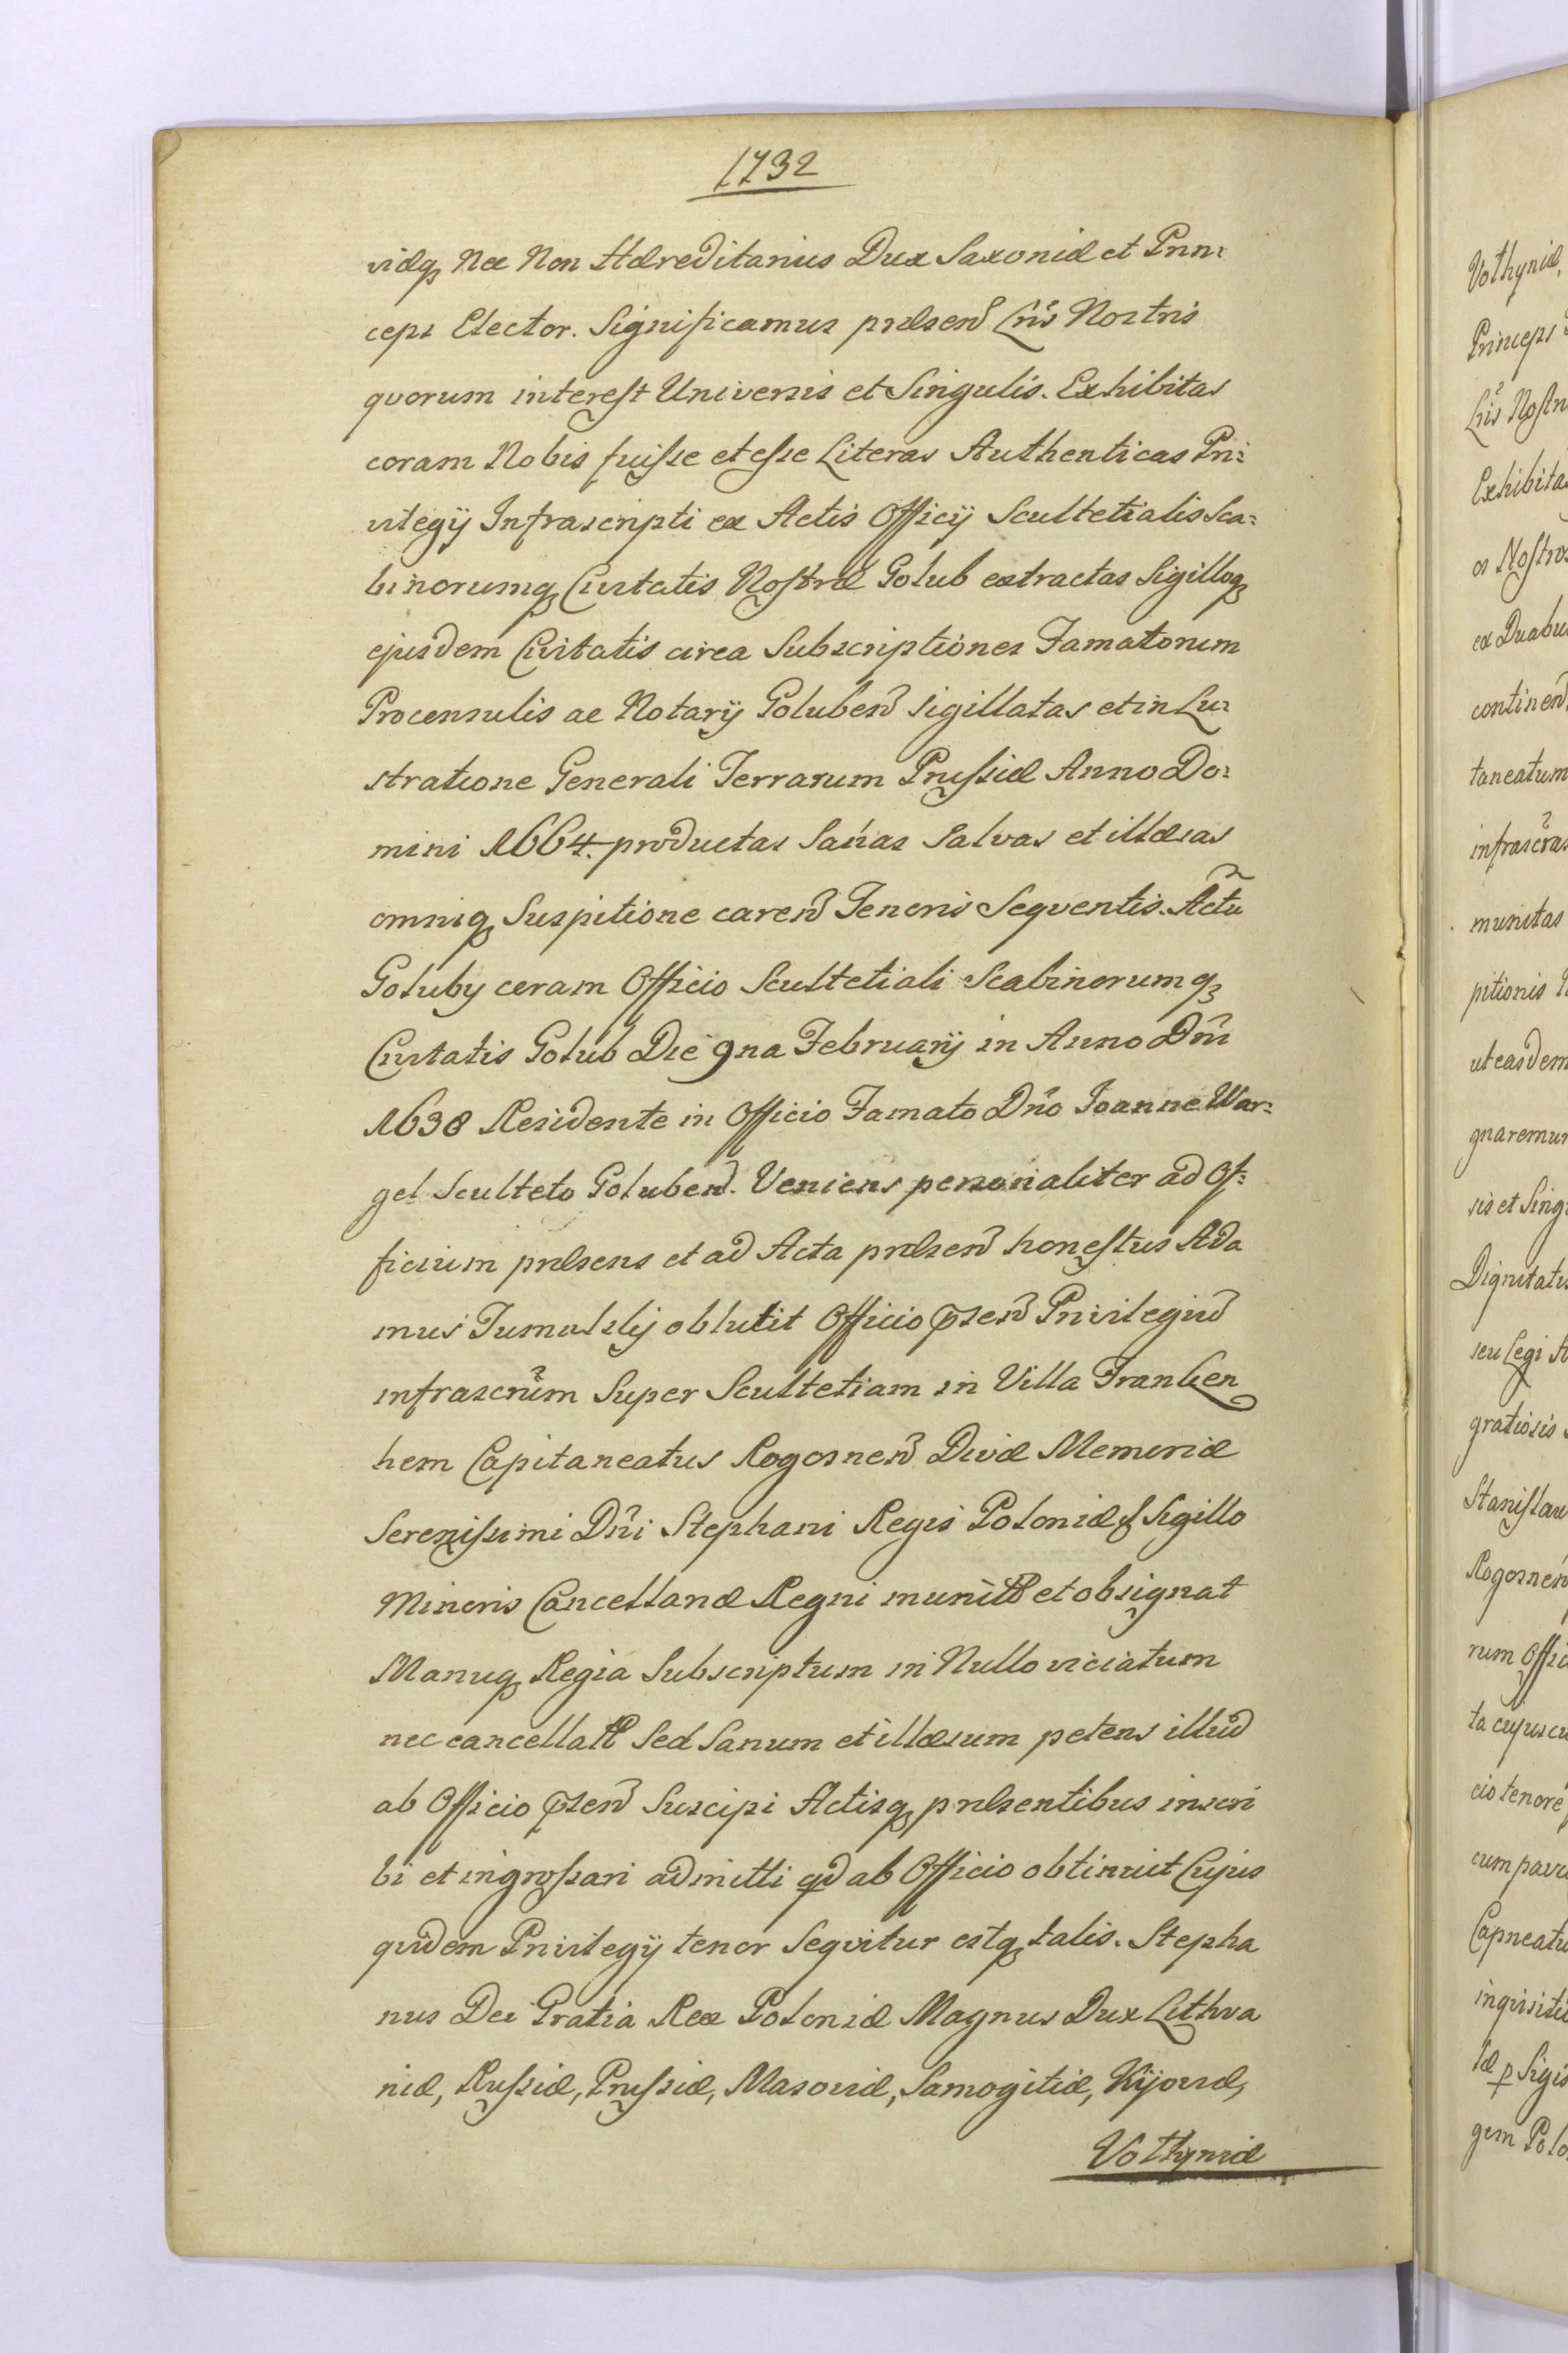 1732
viæq₃ Nec Non Hæreditarius Dux Saxoniæ et Prin:
ceps Elector. Significamus præsen͠ Lr̃is Nostris
quorum interest Universis et Singulis. Exhibitas
coram Nobis fuisse et esse Literas Authenticas Pri:
vilegij Infrascripti ex Actis Officij Scultetialis Sca:
binorumq₃ Civitatis Nostræ Golub extractas Sigilloq₃
ejusdem Civitatis circa Subscriptiones Famatorum
Proconsulis ac Notarij Goluben͠ sigillatas et in Lu:
stratione Generali Terrarum Prussiæ Anno Do:
mini 1664. productas Sanas Salvas et illæsas
omniq₃ Suspitione caren͠ Tenoris Sequentis. Actũ
Goluby coram Officio Scultetiali Scabinorumq₃
Civitatis Golub Die 9na Februarij in Anno Dñi
1638 Residente in Officio Famato Dño Joanne War:
gel Sculteto Goluben͠. Veniens personaliter ad Of:
ficium præsens et ad Acta præsen͠ honestus Ada
mus Tumalsky obtulit Officio pñsen͠ Privilegiu͠
infrascr̃um Super Scultetiam in Villa Franken
hem Capitaneatus Rogosnen͠ Divæ Memoriæ
Serenissimi Dñi Stephani Regis Poloniæ & Sigillo
Minoris Cancellariæ Regni munitũ et obsignat
Manuq₃ Regia Subscriptum in Nullo viciatum
nec cancellatũ Sed Sanum et illæsum petens illud
ab Officio pñsen͠ Suscipi Actisq₃ præsentibus inscri
bi et ingrossari admitti qd ab Officio obtinuit Cujus
quidem Privilegij tenor Sequitur estq₃ talis. Stepha
nus Dei Gratia Rex Poloniæ Magnus Dux Lithva
niæ, Russiæ, Prussiæ, Masoviæ, Samogitiæ, Kijoviæ,
Volhyniæ
Volhyniæ,
Princeps
Lr̃is Nostri
Exhibita
os Nostros
ex Duabu
continen͠
taneatum
infrascr̃as
munitas
pitionis
ut easdem
gnaremur
sis et Sing
Dignitatis
seu Legi
gratiosis
Stanislau
Rogosnen͠
rum Offic
ta cujuscu
cio tenore
cum pavi
Capneatu
inquisiti
Sigis
gem Polo